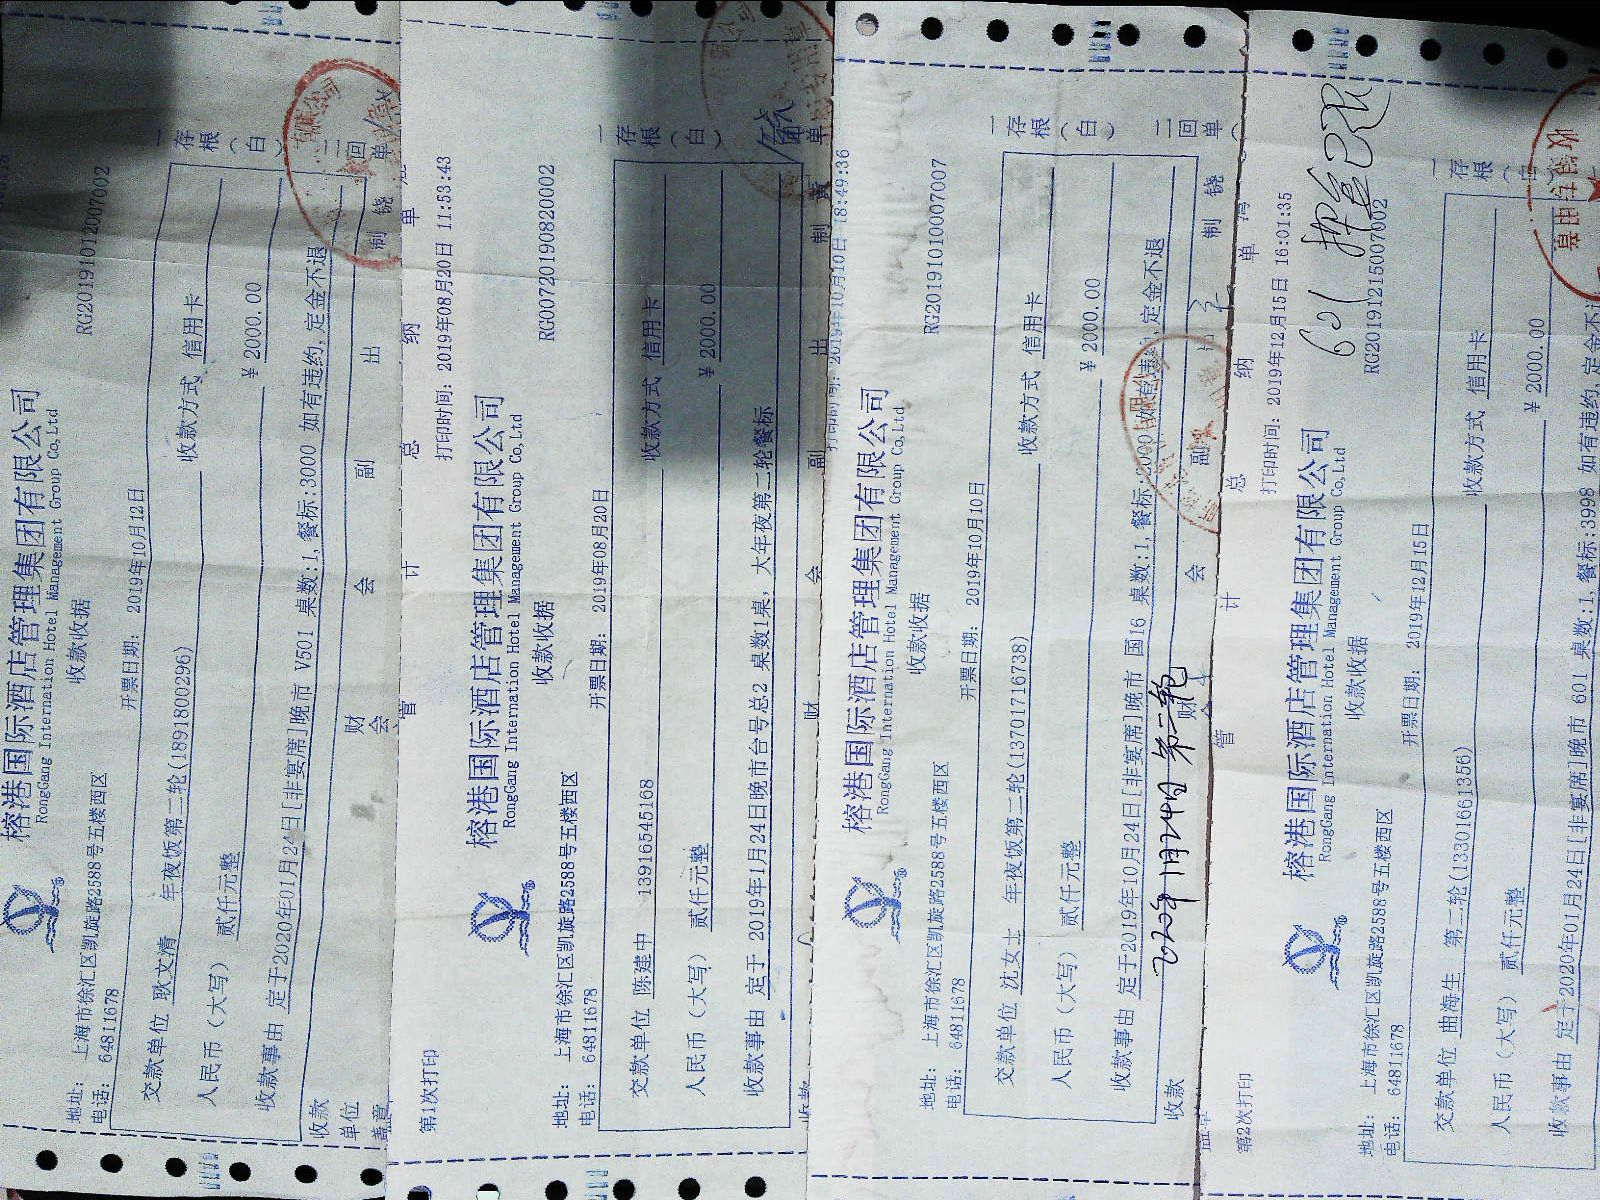 榕港国际酒店管理集团有限公司
RongGang Internation Hotel Management Group Co,Ltd
收款收据
RG20191012007002
地址: 上海市徐汇区凯旋路2588号五楼西区
电话: 64811678
开票日期: 2019年10月12日
交款单位 耿文清 年夜饭第二轮(18918800296)
收款方式 信用卡
人民币（大写） 贰仟元整
¥ 2000.00
收款事由 定于2020年01月24日[非宴席]晚市 V501 桌数:1,餐标:3000 如有违约,定金不退
收款单位盖章
财会 会 副 出 制
管 计 总 纳 单
一存根(白) 二回单
第1次打印
打印时间: 2019年08月20日 11:53:43
榕港国际酒店管理集团有限公司
RongGang Internation Hotel Management Group Co,Ltd
收款收据
RG00720190820002
地址: 上海市徐汇区凯旋路2588号五楼西区
电话: 64811678
开票日期: 2019年08月20日
交款单位 陈建中 13916545168
收款方式 信用卡
人民币（大写） 贰仟元整
¥ 2000.00
收款事由 定于 2019年1月24日晚市台号总2 桌数1桌, 大年夜第二轮餐标
收款
财 会 副 出 制
一存根(白)
打印时间: 2019年10月10日 18:49:36
榕港国际酒店管理集团有限公司
RongGang Internation Hotel Management Group Co,Ltd
收款收据
RG20191010007007
地址: 上海市徐汇区凯旋路2588号五楼西区
电话: 64811678
开票日期: 2019年10月10日
交款单位 沈女士 年夜饭第二轮(13701716738)
收款方式 信用卡
人民币（大写） 贰仟元整
¥ 2000.00
收款事由 定于2019年10月24日[非宴席]晚市 国16 桌数:1,餐标: 如有违约,定金不退
2020年1月24日 第二轮
收款
财会 会 副 出 制
管 计 总 纳 单
一存根(白) 二回单
第2次打印
打印时间: 2019年12月15日 16:01:35
601
榕港国际酒店管理集团有限公司
RongGang Internation Hotel Management Group Co,Ltd
收款收据
RG20191215007002
地址: 上海市徐汇区凯旋路2588号五楼西区
电话: 64811678
开票日期: 2019年12月15日
交款单位 曲海生 第二轮(13301661356)
收款方式 信用卡
人民币（大写） 贰仟元整
¥ 2000.00
收款事由 定于2020年01月24日[非宴席]晚市 601 桌数:1,餐标:3998 如有违约,定金不
一存根(白)